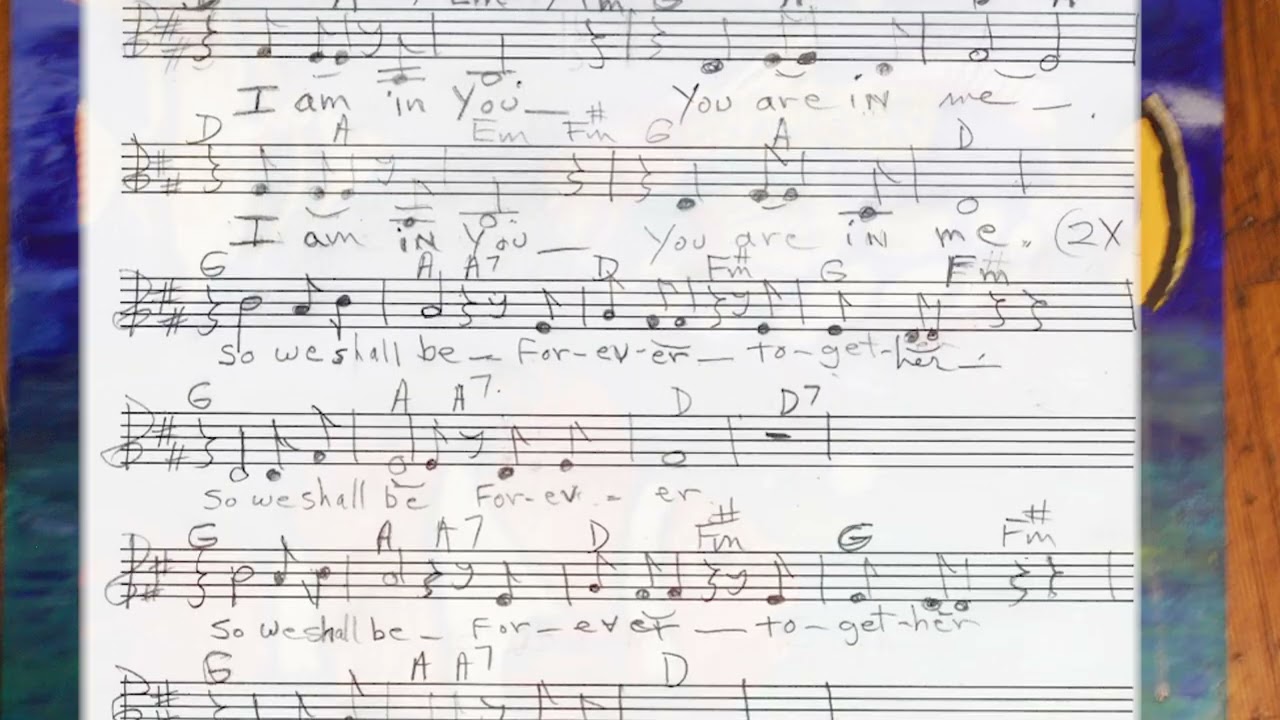 I am in You_ You are iN me _ .
D A Em F#m G A D
I am iN You _ You are iN me. (2X
G A A7 D F#m G F#m
So we shall be _ For-ev-er _ to-get-her _
G A A7 D D7
So we shall be For-ev - er
G A A7 D F#m G F#m
So we shall be _ For-ever _ to-get-her
G A A7 D